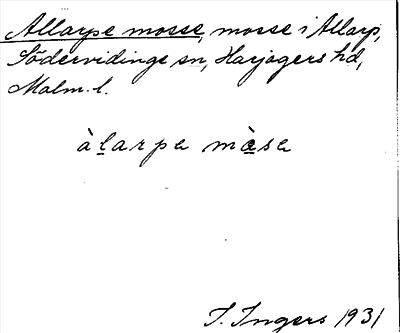 Allarpe mosse, mosse i Allarp,
Södervidinge sn, Harjagers hd,
Malm. l.
àlarpa màsa
I. Ingers 1931